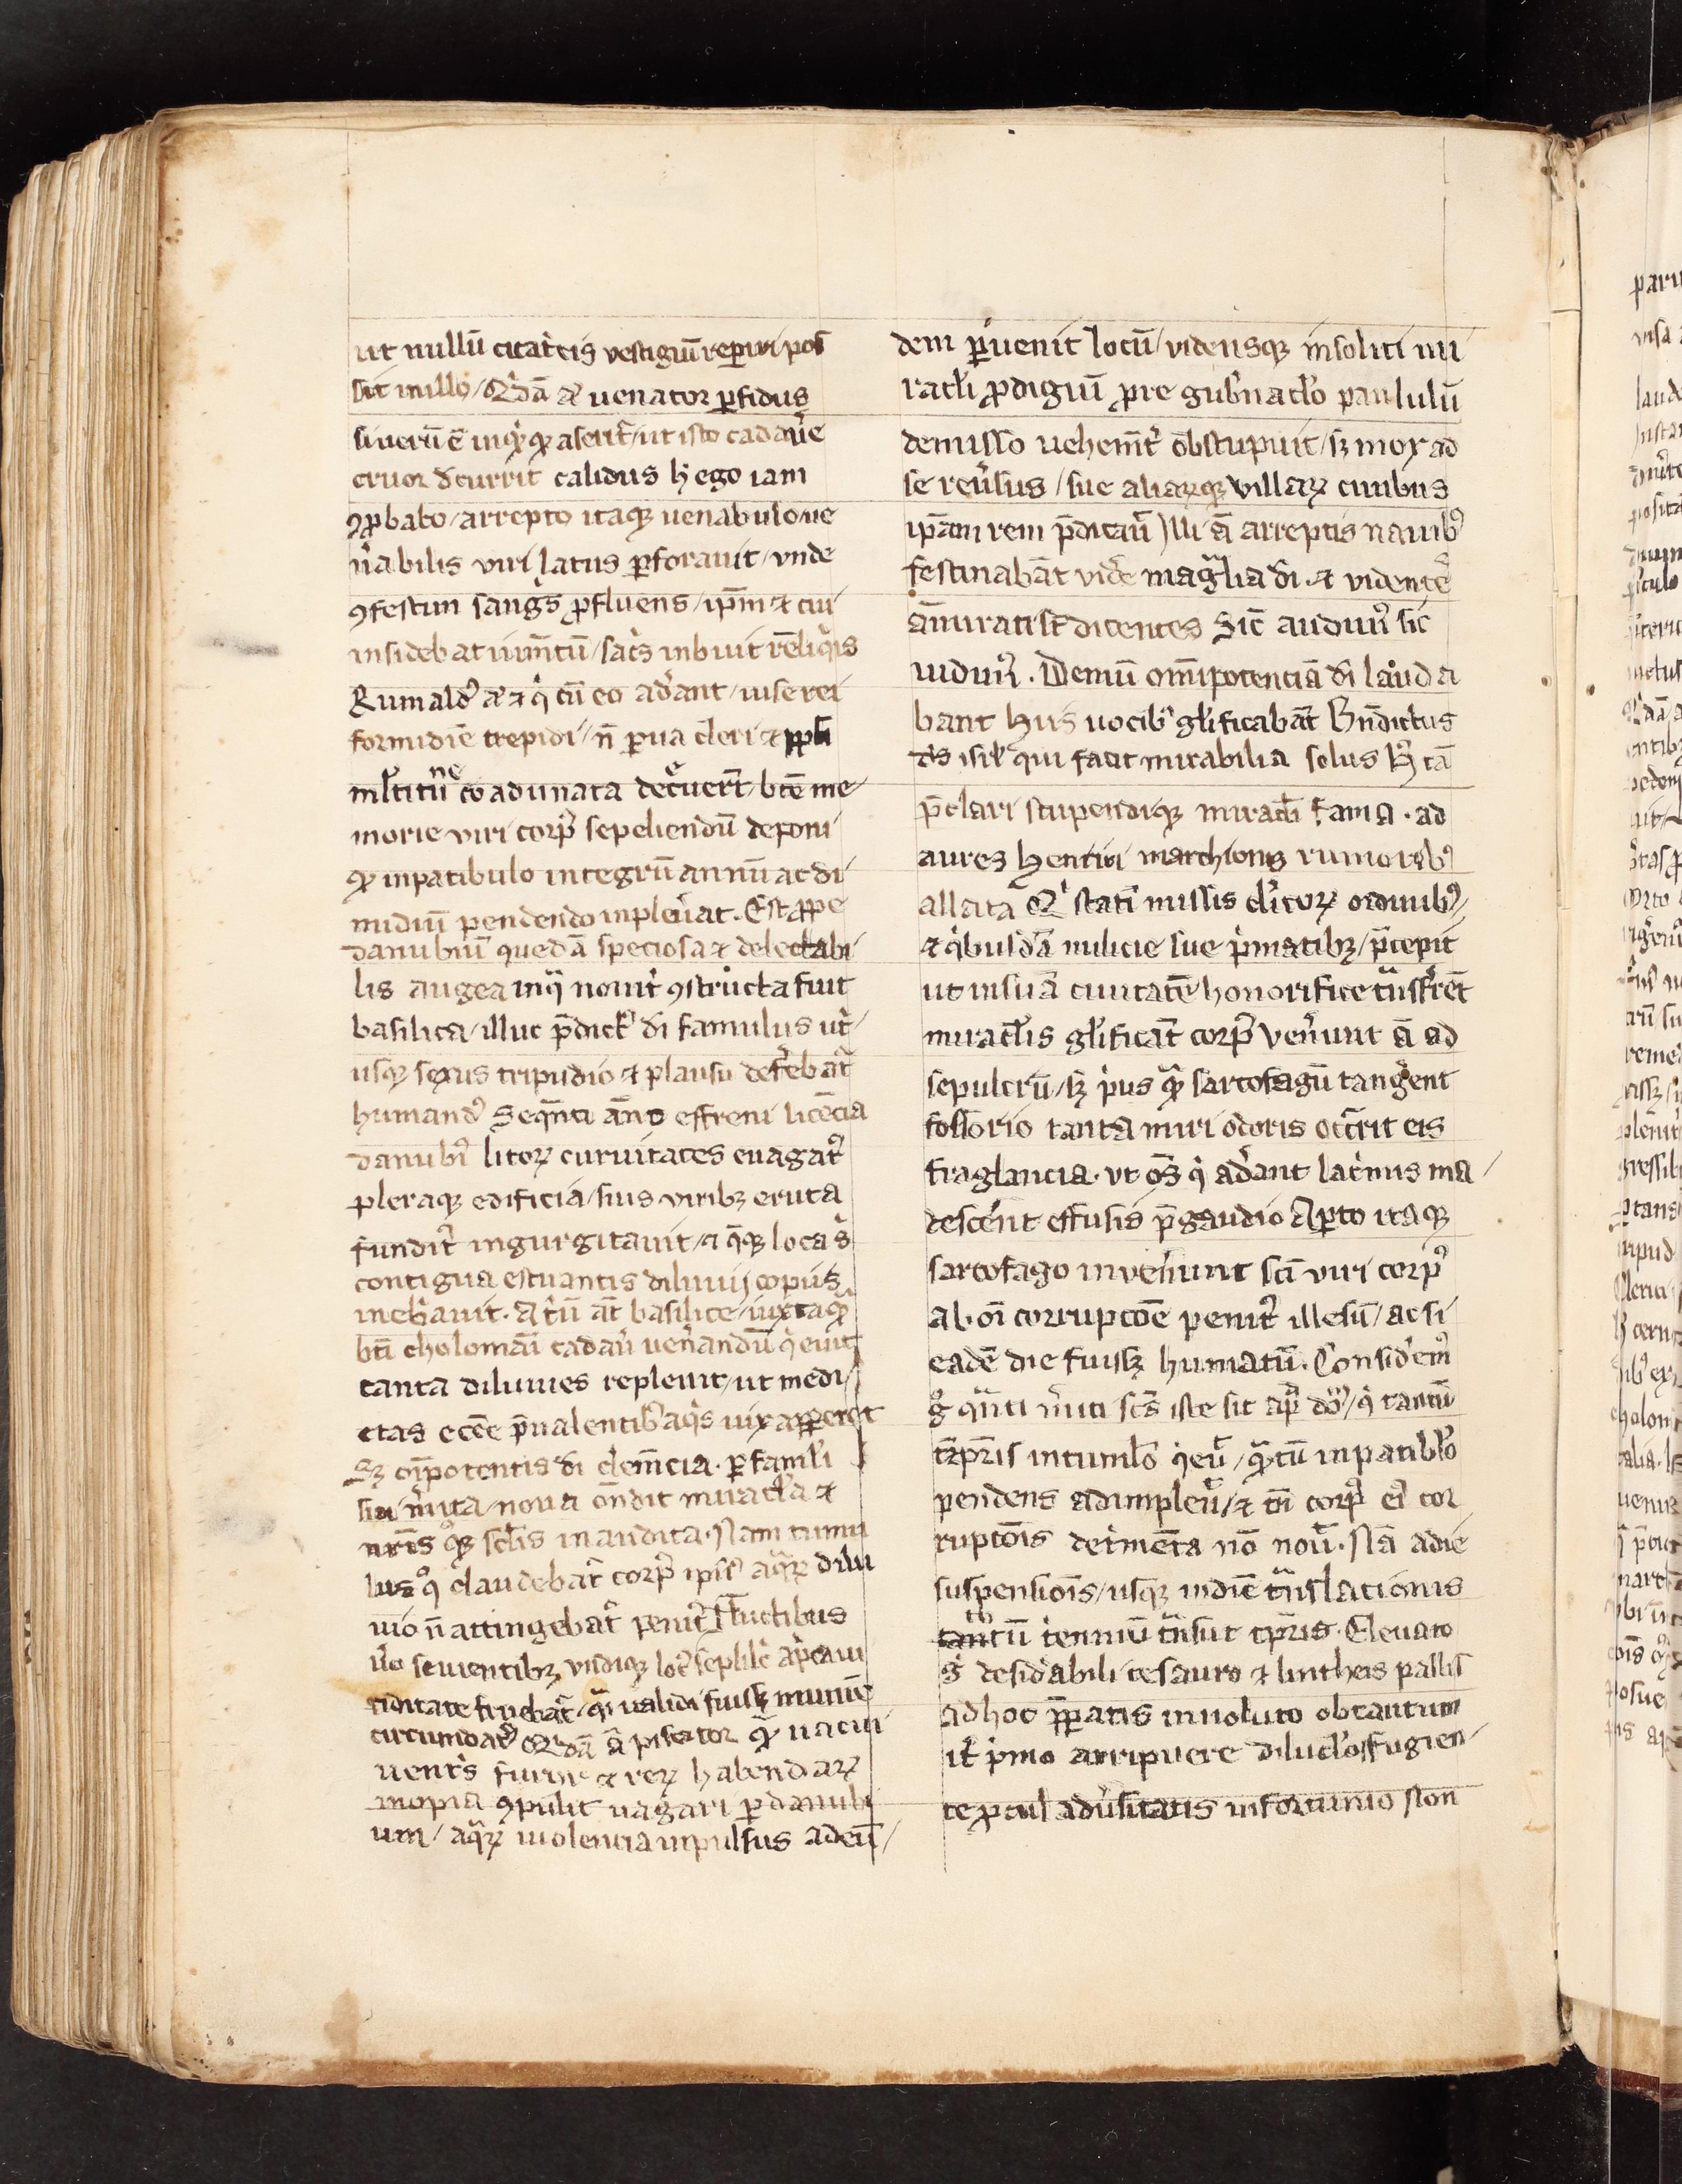 ut nullū citatͥcis vestigiū reperiri pos
sit in illo / Qͥdā aͧ venator p̲fidus
si verū ē inqͥt qͣ aserit̄ / ut isto cadav̄e
cruor dcurrit calidus h ego iam
ꝯp̲babo / arrepto itaqꝫ uenabulo / ve
n̄abilis viri latus p̲foravit / vnde
ꝯfestim sangͥs ꝓfluens / ip̄m ⁊ cui
insidebat iūm̄tū / sacͥs inbuit rēliqͥis
Rumaldꝰ aͧ ⁊ qͥ cū eo ad̄ant / vise rei
formidīe trepidi / n̄ p̲va cleri ⁊ pp̄li
ml̄titūne coadunata decͣuer̄t / btē me
morie viri corpꝰ sepeliendū deponi
qꝛ in patibulo integrū annū ac di
midiū pendendo inplev̄at. Est ꝓpe
danubiū quedā speciosa ⁊ delectabi
lis augea in qͣ nouit̄ ꝯstructa fuit
basilica / illuc p̄dictꝰ di famulus ut̄
usqꝫ sexus tripudio ⁊ plausu def̄ebat̄
humandꝰ Seqn̄ti āno effreni licēcia
danubiꝰ litoꝝ curuitates euagatꝰ
pleraqꝫ edificia / suis viribꝫ eruta
fundit̄ ingurgitauit / ⁊ qͣqꝫ loca sͥ
contigua estuantis diluuij copiis
ineb̄auit. Atͥū āt basilice / iuxta qꝛ
bt̄i cholomāi cadav̄ uen̄andū qͥeuit
tanta diluuies repleuit / ut medi
etas ecc̄e p̄ualentibꝰ aqͥs vix apperet
Sꝫ oīpotentis di clem̄cia. p̲ famuli
sui m̄ita / noua on̄dit mirac̄la ⁊
nr̄is qꝫ sc̄lis inaudita. Nam tumu
lus qͦ claudebat̄ corpꝰ ipiꝰ aqͣꝝ dilu
uio n̄ attingebat̄ penitꝰ Fluctibus
v̄o seuientibꝫ, vndiqꝫ locꝰ sepl̄ic̄ apͥcaui
ciditate fruebat̄ / qͣi validi fuisꝫ muniē
circumdatꝰ Qͥdā ā piscator qꝛ vacui
uentͥs furor ⁊ reꝝ habendaꝝ
inopia ꝯpulit uagari p̲ danubi
um / aqͣꝝ violencia inpulsus ad eū
dem p̲uenit locū / vidensqꝫ insoliti mi
racl̄i ꝓdigiū pre gub̄nacl̄o paululū
demisso vehem̄t̄ obstupuit / sꝫ mox ad
se rev̄sus / sue aliaꝝqꝫ villaꝝ ciuibus
ip̄am rem p̄dicau̅ Illi ā arreptis nauibꝰ
festinabāt vid̄e magͣlia di. ⁊ videntē
amirati st̄ dicentes Sic̄ audiuimꝰ sic
uidimꝰ. Demū om̄ipotenciā di lauda
bant hiis uocibꝰ gl̄ificabāt Bn̄dictus
ds̄ isrl̄ qui facit mirabilia solus Hꝰ tā
p̄clari stupendiqꝫ miracl̄i fama. ad
aures henrici marchionis rumoribꝰ
allata ē Qͥ statī missis cl̄icoꝝ ordinibꝰ /
⁊ qͥbusdā milicie sue pͥmatibꝫ / p̄cepit
ut in suā ciuitatē honorifice tͣnsf̄rēt
miracl̄is gl̄ificāt̄ corpꝰ Ven̄unt ā ad
sepulcrū / sꝫ pͥus qͣꝫ sarcofagū tanḡent
fossorio tanta miri odoris occͣrit eis
fraglancia. vt oēs qͥ ad̄ant lacͥmis ma
desc̄ent effusis p̄ gaudio Ap̲to itaqꝫ
sarcofago inven̄unt sc̄i viri corpꝰ
ab oī corrupcōe penitꝰ illesū / ac si
eadē die fuisꝫ humatū. Consid̄emꝰ
gͦ qͣnti m̄iti sc̄s iste sit apͩ dm̄ / qͥ tantū
tꝑris in tumlo qͥeū / qͣtū in patiblo
pendens adimplev̄ / ⁊ tn̄ corpꝰ eiꝰ cor
rupcōis detͥmēta nō nou̅. Nā a die
suspensiōis / usqꝫ in diē tͣnslacionis
tantū tenniū tͣnsiit tꝑris. Eleuato
gͥ desid̄abili tesauro ⁊ lintheis pallis
ad hoc p̲patis inuoluto obtantum
it̄ pͥmo arripuere diluclo / fugien
te ꝓcul adu̅sitatis infortunio Non